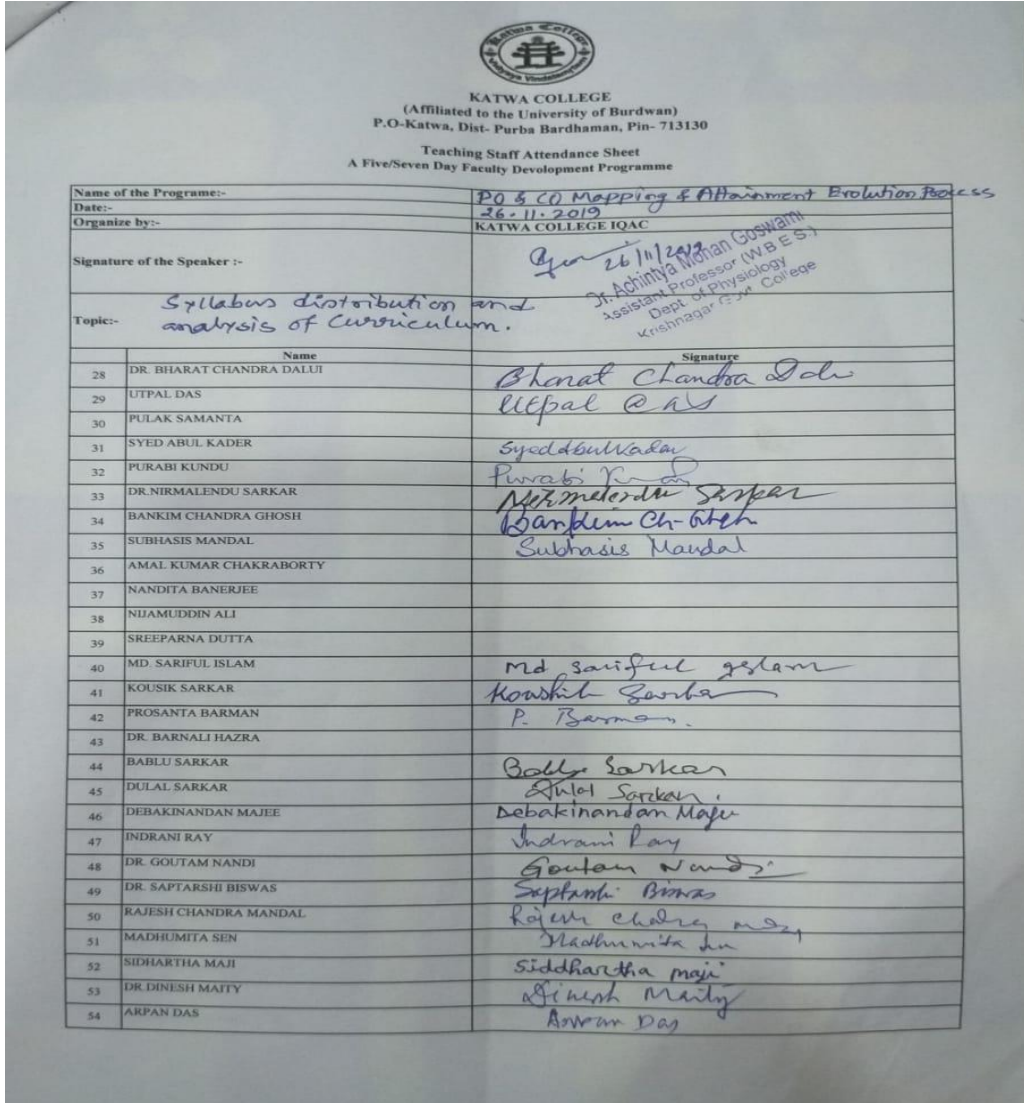 Katwa College
Vidyaya Vindatamritam
KATWA COLLEGE
(Affiliated to the University of Burdwan)
P.O-Katwa, Dist- Purba Bardhaman, Pin- 713130
Teaching Staff Attendance Sheet
A Five/Seven Day Faculty Devolopment Programme
Name of the Programe:- PO & CO Mapping & Attainment Evolution Process
Date:- 26.11.2019
Organize by:- KATWA COLLEGE IQAC
Signature of the Speaker :- 26/11/2019
Dr. Achintya Mohan Goswami
Assistant Professor (W.B.E.S.)
Dept. of Physiology
Krishnagar Govt. College
Topic:- Syllabus distribution and
analysis of Curriculum.
Name Signature
28 DR. BHARAT CHANDRA DALUI Bharat Chandra
29 UTPAL DAS Utpal Das
30 PULAK SAMANTA
31 SYED ABUL KADER Syed Abul Kader
32 PURABI KUNDU Purabi
33 DR.NIRMALENDU SARKAR Nirmalendu Sarkar
34 BANKIM CHANDRA GHOSH Bankim Ch- Ghosh
35 SUBHASIS MANDAL Subhasis Mandal
36 AMAL KUMAR CHAKRABORTY
37 NANDITA BANERJEE
38 NIJAMUDDIN ALI
39 SREEPARNA DUTTA
40 MD. SARIFUL ISLAM Md Sariful Islam
41 KOUSIK SARKAR Koushik Sarkar
42 PROSANTA BARMAN P. Barman.
43 DR. BARNALI HAZRA
44 BABLU SARKAR Bablu Sarkar
45 DULAL SARKAR Dulal Sarkar.
46 DEBAKINANDAN MAJEE Debakinandan Majee
47 INDRANI RAY Indrani Ray
48 DR. GOUTAM NANDI Goutam Nandi
49 DR. SAPTARSHI BISWAS Saptarshi Biswas
50 RAJESH CHANDRA MANDAL Rajesh Chandra
51 MADHUMITA SEN Madhumita Sen
52 SIDHARTHA MAJI Siddhartha Maji
53 DR.DINESH MAITY Dinesh Maity
54 ARPAN DAS Arpan Das